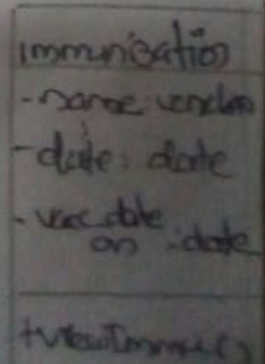 immunisation
- name: 
- date: date
- vacc date
on : date
+ViewImmu()